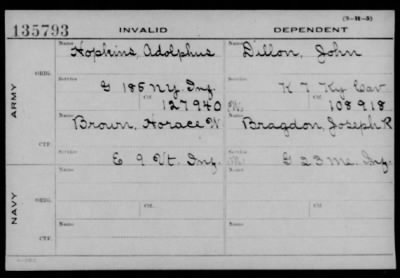 (3-M-5)
135793 INVALID DEPENDENT
Name Hopkins, Adolphus Name Dillon, John
ARMY
ORIG. Service G 185 N.Y. Inf. Service K 7 Ky Cav
Ctf. 127940 Ctf. 108918
Name Brown, Horace W Name Bragdon, Joseph R
CTF. Service E 9 Vt. Inf. G 23 Me. Inf.
NAVY
Name Name
ORIG. Service Ctf. Service Ctf.
Name Name
CTF. Service Service